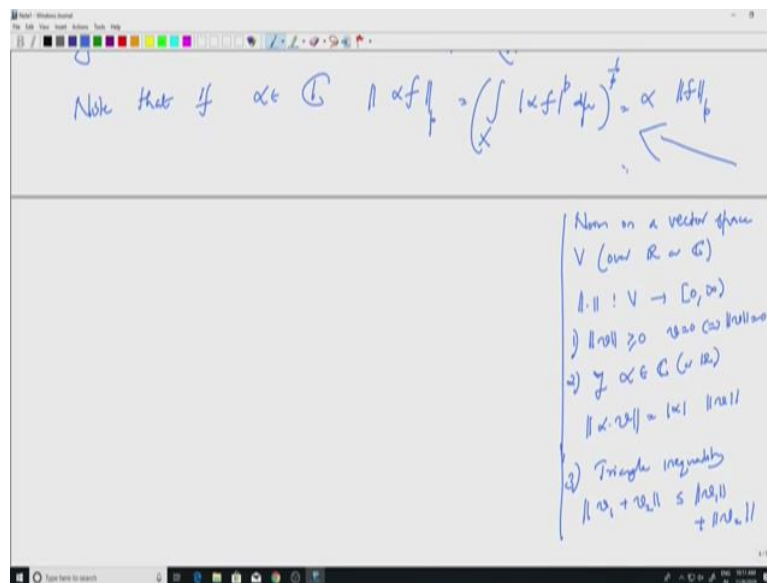 Note1 - Windows Journal
File Edit View Insert Actions Tools Help
Note that if α ∈ ℂ ‖αf‖_p = (∫_X |αf|^p dμ)^{1/p} = α ‖f‖_p
Norm on a vector space
V (over ℝ or ℂ)
‖.‖ : V → [0, ∞)
1) ‖v‖ ≥ 0 v=0 ⇔ ‖v‖=0
2) If α ∈ ℂ (or ℝ)
‖α.v‖ = |α| ‖v‖
3) Triangle inequality
‖v₁ + v₂‖ ≤ ‖v₁‖
+ ‖v₂‖
Type here to search
ENG 10:11 AM